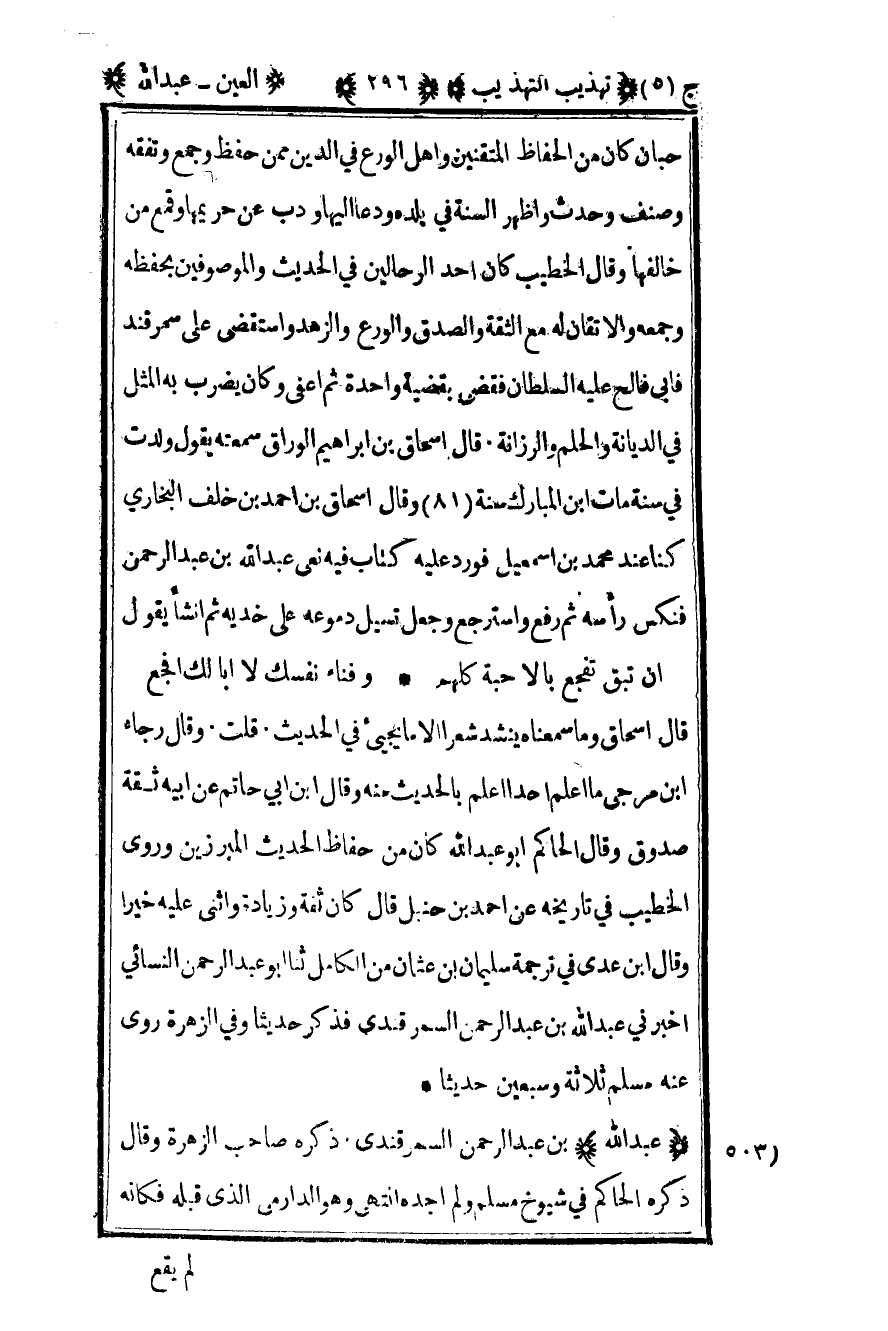 ج (٥) ﴿ تهذيب التهذيب ﴾ ﴿ ٢٩٦ ﴾ ﴿ العين - عبدالله ﴾
حبان كان من الحفاظ المتقنين واهل الورع في الدين ممن حفظ وجمع وتفقه
وصنف وحدث واظهر السنة في بلده ودعا اليها وذب عن حريمها وقمع من
خالفها وقال الخطيب كان احد الرحالين في الحديث والموصوفين بحفظه
وجمعه والاتقان له مع الثقة والصدق والورع والزهد واستقضى على سمرقند
فابى فالح عليه السلطان فقضى بقضية واحدة ثم اعفى وكان يضرب به المثل
في الديانة والحلم والرزانة . قال اسحاق بن ابراهيم الوراق سمعته يقول ولدت
في سنة مات ابن المبارك سنة (٨١) وقال اسحاق بن احمد بن خلف البخاري
كنا عند محمد بن اسمعيل فورد عليه كتاب فيه نعى عبدالله بن عبدالرحمن
فنكس رأسه ثم رفع واسترجع وجعل تسيل دموعه على خديه ثم انشأ يقول
ان تبق تفجع بالاحبة كلهم * وفناء نفسك لا ابا لك افجع
قال اسحاق وما سمعناه ينشد شعرا الا ما يجيئ في الحديث . قلت . وقال رجاء
ابن مرجى ما اعلم احدا اعلم بالحديث منه وقال ابن ابي حاتم عن ابيه ثقة
صدوق وقال الحاكم ابو عبدالله كان من حفاظ الحديث المبرزين وروى
الخطيب في تاريخه عن احمد بن حنبل قال كان ثقة وزيادة واثنى عليه خيرا
وقال ابن عدى في ترجمة سليمان بن عثمان من الكامل ثنا ابو عبدالرحمن النسائي
اخبرني عبدالله بن عبدالرحمن السمرقندى فذكر حديثا وفي الزهرة روى
عنه مسلم ثلاثة وسبعين حديثا *
(٥٠٣ ﴿ عبدالله ﴾ بن عبدالرحمن السمرقندى . ذكره صاحب الزهرة وقال
ذكره الحاكم في شيوخ مسلم ولم اجده انتهى وهو الدارمى الذى قبله فكانه
لم يقع